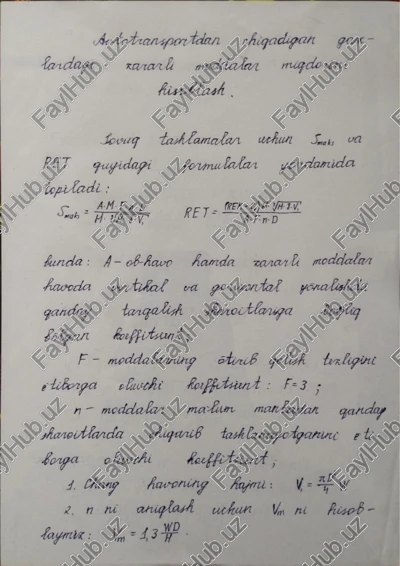 Avtotransportdan chiqadigan gaz-
lardagi zararli moddalar miqdorini
hisoblash.
Sovuq tashlamalar uchun Smaks va
RET quyidagi formulalar yordamida
topiladi:
Smaks = RET =
bunda: A-ob-havo hamda zararli moddalar
havoda vertikal va gorizontal yo'nalishda
qanday tarqalish sharoitlariga bog'liq
bo'lgan koeffitsent;
F - moddalarning o'tirib qolish tezligini
e'tiborga oluvchi koeffitsient: F=3;
n-moddalar ma'lum manbadan qanday
sharoitlarda chiqarib tashlanayotganini e'ti
borga oluvchi koeffitsient;
1. Chang havoning hajmi: V₁ =
2. n ni aniqlash uchun Vm ni hisob-
laymiz: Vm = 1,3 WD/H.
FaylHub.uz